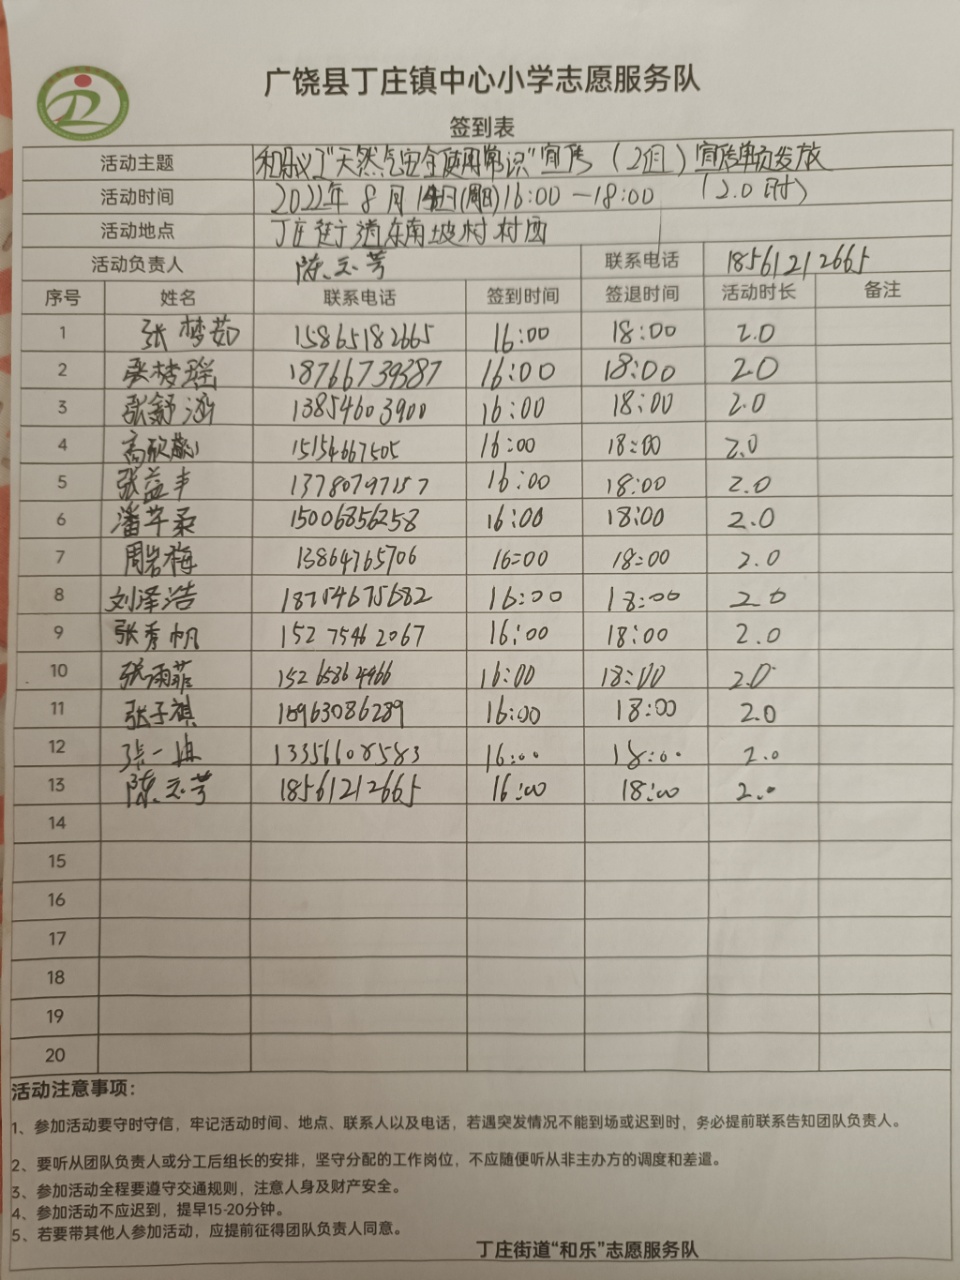 广饶县丁庄镇中心小学志愿服务队
签到表
活动主题 "天然气安全使用常识"宣传（2组）宣传单页发放
活动时间 2022年8月14日(周日)16:00—18:00 （2.0时）
活动地点 丁庄街道东南坡村村西
活动负责人 陈志芳 联系电话 18561212665
序号 姓名 联系电话 签到时间 签退时间 活动时长 备注
1 张梦茹 15865182665 16:00 18:00 2.0
2 张梦瑶 18766739387 16:00 18:00 2.0
3 张舒涵 13854603900 16:00 18:00 2.0
4 高欣 15154667505 16:00 18:00 2.0
5 张益丰 13780797157 16:00 18:00 2.0
6 潘芊柔 15006856258 16:00 18:00 2.0
7 周岩梅 13864765706 16:00 18:00 2.0
8 刘泽浩 18754675682 16:00 18:00 2.0
9 张秀帆 15275462067 16:00 18:00 2.0
10 张雨菲 15265864966 16:00 18:00 2.0
11 张子祺 15963086289 16:00 18:00 2.0
12 张一冉 13356608583 16:00 18:00 2.0
13 陈志芳 18561212665 16:00 18:00 2.0
14
15
16
17
18
19
20
活动注意事项：
1、参加活动要守时守信，牢记活动时间、地点、联系人以及电话，若遇突发情况不能到场或迟到时，务必提前联系告知团队负责人。
2、要听从团队负责人或分工后组长的安排，坚守分配的工作岗位，不应随便听从非主办方的调度和差遣。
3、参加活动全程要遵守交通规则，注意人身及财产安全。
4、参加活动不应迟到，提早15-20分钟。
5、若要带其他人参加活动，应提前征得团队负责人同意。
丁庄街道“和乐”志愿服务队